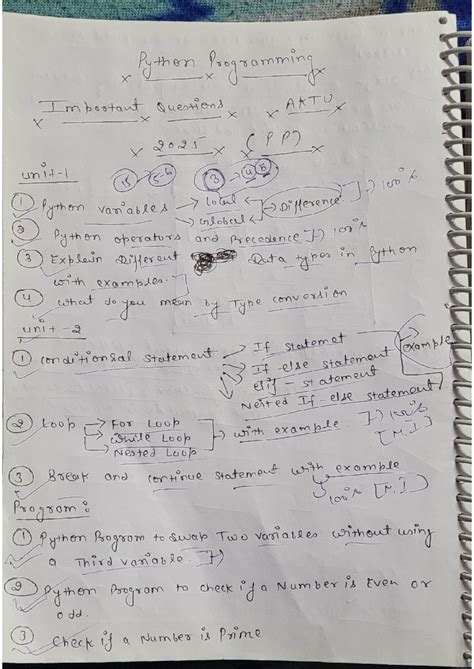 Python Programming
Important Questions AKTU
2025 (PP)
unit-1
15 5-6 3 4 5
① Python variables → Local → Global Difference 100%
② Python operators and Precedence 100%
③ Explain Different Data types in Python
with examples.
④ what do you mean by Type conversion
unit-2
① conditionsal statement → If statemet
If else statement example
elif - statement
Nested If else statement
② Loop → For Loop
while Loop with example 100%
Nested Loop [M.I]
③ Break and continue statement with example
100% [M.I]
Program:
① Python Program to swap Two variables without using
a Third variable.
② Python Program to check if a Number is Even or
odd.
③ Check if a Number is Prime